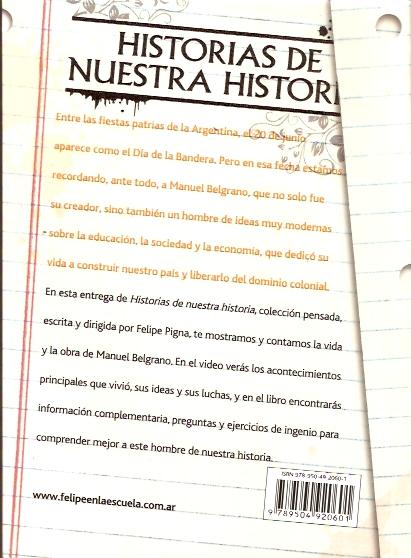 HISTORIAS DE
NUESTRA HISTORI
Entre las fiestas patrias de la Argentina, el 20 de junio
aparece como el Día de la Bandera. Pero en esa fecha estamos
recordando, ante todo, a Manuel Belgrano, que no solo fue
su creador, sino también un hombre de ideas muy modernas
sobre la educación, la sociedad y la economía, que dedicó su
vida a construir nuestro país y liberarlo del dominio colonial.
En esta entrega de Historias de nuestra historia, colección pensada,
escrita y dirigida por Felipe Pigna, te mostramos y contamos la vida
y la obra de Manuel Belgrano. En el video verás los acontecimientos
principales que vivió, sus ideas y sus luchas, y en el libro encontrarás
información complementaria, preguntas y ejercicios de ingenio para
comprender mejor a este hombre de nuestra historia.
ISBN 978-950-49-2060-1
9 789504 920601
www.felipeenlaescuela.com.ar